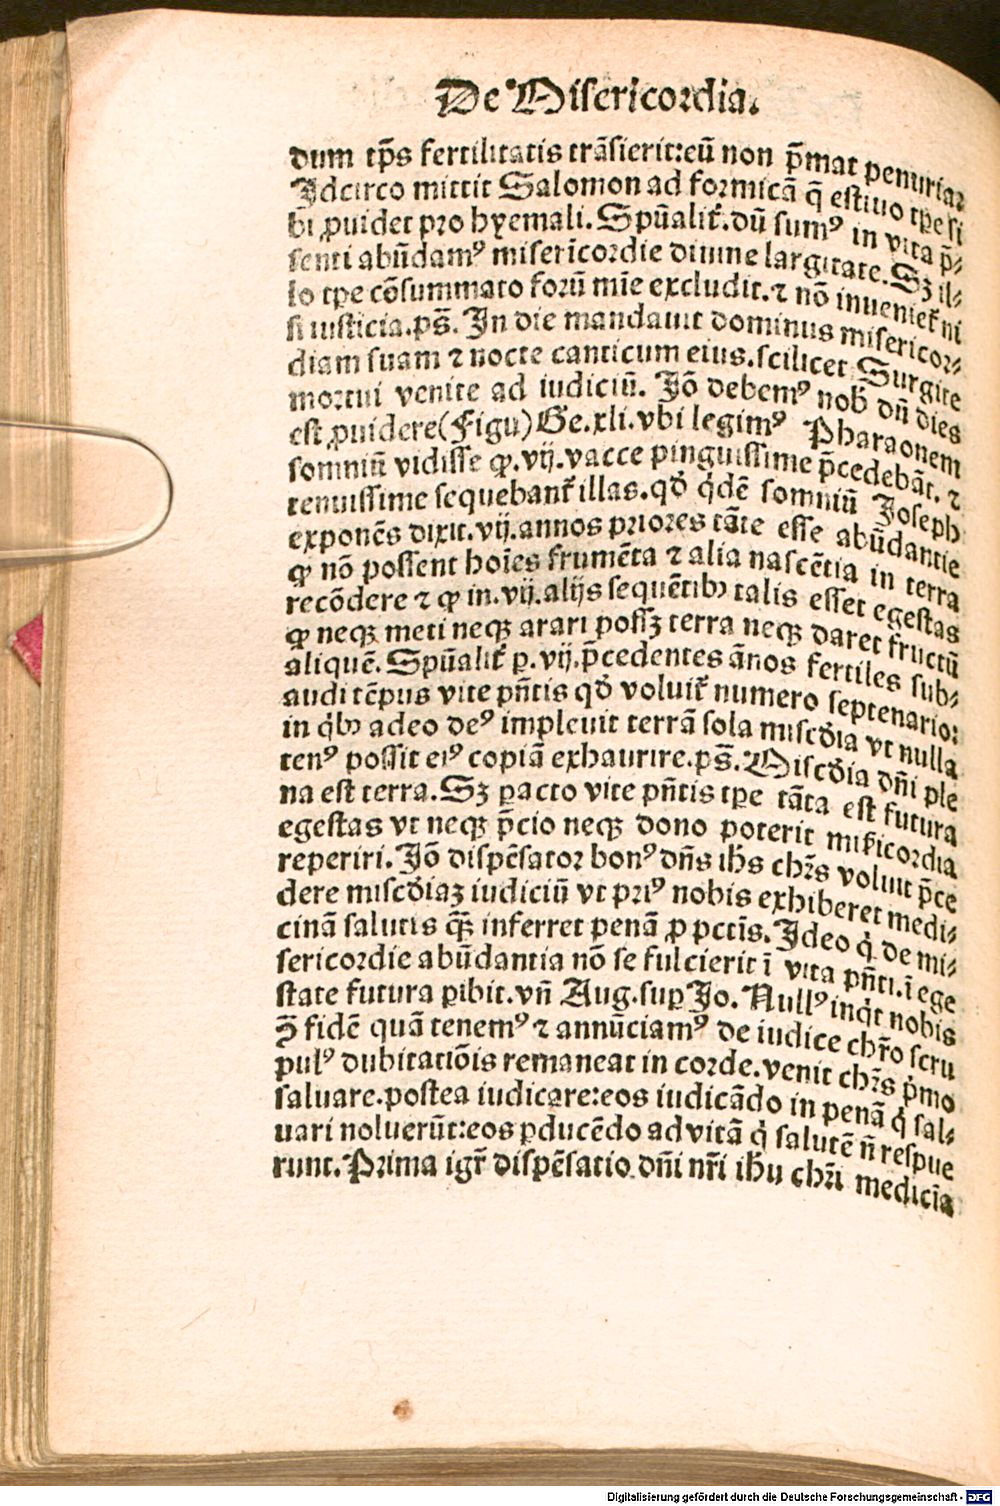 De Misericordia.
dum tp̄s fertilitatis trāsierit:eū non p̄mat penuria?
Idcirco mittit Salomon ad formicā q̄ estiuo tp̄e si
bi ꝓuidet pro hyemali. Spūalit᷑. dū sumꝰ in vita p̄-
senti abūdamꝰ misericordie diuine largitate. Sꝫ il-
lo tp̄e cōsummato forū mīe excludit. ⁊ nō inueniet᷑ ni
si iusticia. ps̄. In die mandauit dominus misericor-
diam suam ⁊ nocte canticum eius. scilicet Surgite
mortui venite ad iudiciū. Iō debemꝰ nob̄ dū dies
est ꝓuidere (Figu) Ge. xli. vbi legimꝰ Pharaonem
somniū vidisse ꝙ .vij. vacce pinguissime p̄cedebāt. ⁊
tenuissime sequebant᷑ illas. qđ q̇dē somniū Joseph
exponēs dixit. vij. annos priores tāte esse abūdantie
ꝙ nō possent hoīes frumēta ⁊ alia nascētia in terra
recōdere ⁊ ꝙ in .vij. alijs sequētibꝫ talis esset egestas
ꝙ neqꝫ meti neqꝫ arari possꝫ terra neqꝫ daret fructū
aliquē. Spūalit᷑ ꝑ .vij. p̄cedentes ānos fertiles sub-
audi tēpus vite pn̄tis qđ voluit᷑ numero septenario:
in q̇bꝫ adeo deꝰ impleuit terrā sola misc̄dia vt nulla
tenꝰ possit eiꝰ copiā exhaurire. ps̄. Misc̄dia dn̄i ple
na est terra. Sꝫ ꝑacto vite pn̄tis tp̄e tāta est futura
egestas vt neqꝫ p̄cio neqꝫ dono poterit mīicordia
reperiri. Iō dispēsator bonꝰ dn̄s ihs̄ chr̄s voluit p̄ce
dere misc̄diaꝫ iudiciū vt priꝰ nobis exhiberet medi-
cinā salutis qꝫ̄ inferret penā ꝓ pctīs. Ideo q̇ de mi-
sericordie abūdantia nō se fulcierit ī vita pn̄ti. ī ege
state futura ꝑibit. vn̄ Aug. suꝑ Jo. Nullꝰ inq̇t nobis
ꝫ̄ fidē quā tenemꝰ ⁊ annūciamꝰ de iudice chr̄o scru
pulꝰ dubitatiōis remaneat in corde. venit chr̄s p̄mo
saluare. postea iudicare:eos iudicādo in penā q̇ sal-
uari noluerūt:eos ꝑducēdo ad vitā q̇ salutē n̄ respue
runt. Prima igr̄ dispēsatio dn̄i nr̄i ihū chr̄i medicīa
Digitalisierung gefördert durch die Deutsche Forschungsgemeinschaft - DFG